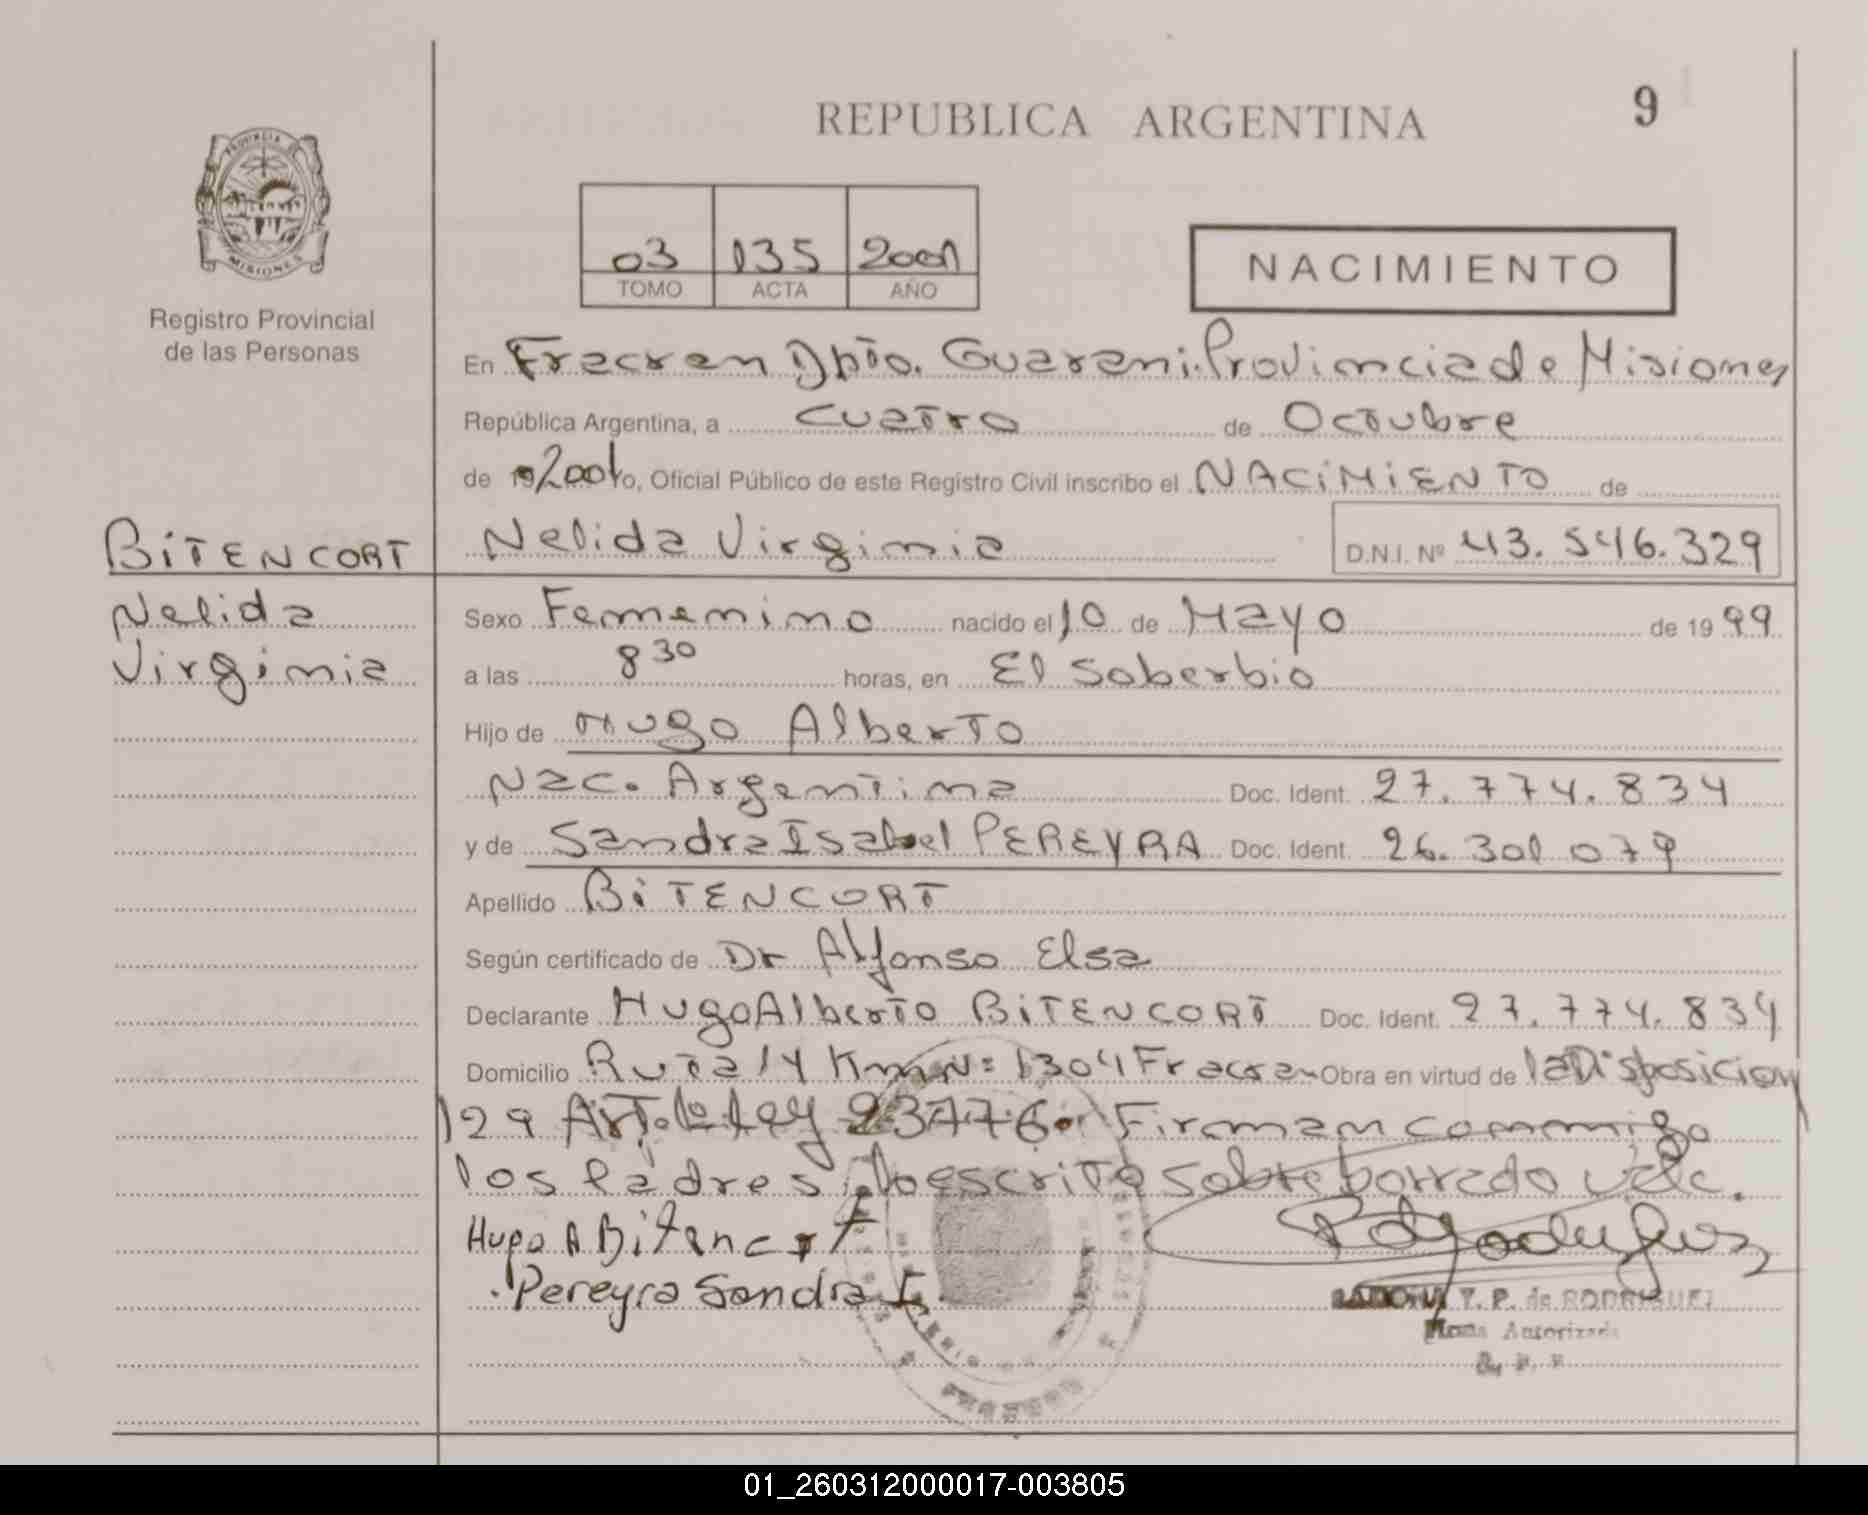 REPUBLICA ARGENTINA
9
PROVINCIA DE
MISIONES
Registro Provincial
de las Personas
03 135 2001
TOMO ACTA AÑO
NACIMIENTO
En Fracran Dpto. Guarani. Provincia de Misiones
República Argentina, a cuatro de Octubre
de 2001 yo, Oficial Público de este Registro Civil inscribo el NACIMIENTO de
BITENCORT
Nelida Virginia D.N.I. Nº 43.546.329
Nelida
Virginia
Sexo Femenino nacido el 10 de Mayo de 1999
a las 8 30 horas, en El Soberbio
Hijo de Hugo Alberto
Nac. Argentina Doc. Ident. 27.774.834
y de Sandra Isabel PEREYRA Doc. Ident. 26.301.079
Apellido BITENCORT
Según certificado de Dr Alfonso Elsa
Declarante Hugo Alberto BITENCORT Doc. Ident. 27.774.834
Domicilio Ruta 14 Km Nº 1304 Fracran Obra en virtud de la Disposicion
129 Art. Ley 23776. Firman conmigo
los Padres. Lo escrito sobre borrado vale.
Hugo A Bitencort
Pereyra Sandra I.
T. P. de RODRIGUEZ
Autorizada
01_260312000017-003805